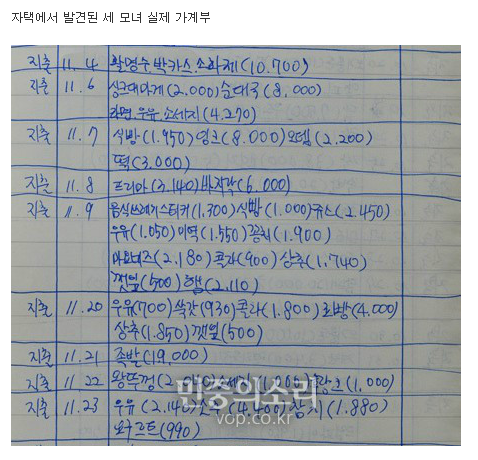 자택에서 발견된 세 모녀 실제 가계부
지출 11. 4 활명수, 박카스, 소화제(10.700)
지출 11. 6 싱크대마개(2,000)순대국(8,000)
라면, 우유, 소세지(4,270)
지출 11. 7 식빵(1.950)잉크(8.000)오뎅(2,200
떡(3,000)
지출 11. 8 프리마(3.140)바지락(6,000)
지출 11. 9 음식쓰레기스티커(1,300)식빵(1.000)쥬스(2.450)
우유(1.050)미역(1.550)꽁치(1.900)
마요네즈(2,180)콜라(900)상추(1.740)
깻잎(500)햄(2.110)
지출 11. 20 우유(700)쑥갓(930)콜라(1.800)(4,000)
상추(1.850)깻잎(500)
지출 11. 21 족발(19,000)
지출 11. 22 왕뚜껑(2, (1,000)
지출 11. 23 우유(2.140)소주(4,400)참치(1.880)
요구르트(990)
민중의소리
vop.co.kr